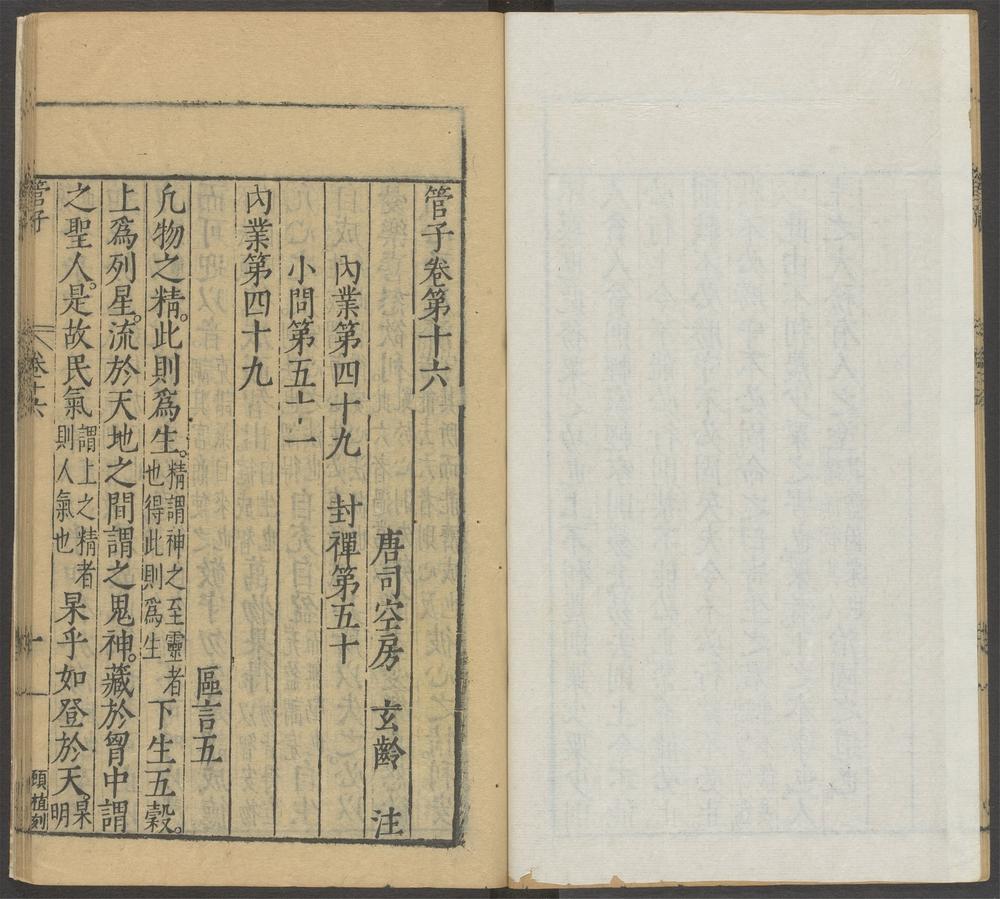 管子卷第十六
唐司空房　玄齡　注
內業第四十九　封禪第五十
小問第五十一
內業第四十九
區言五
凢物之精。此則爲生。精謂神之至靈者也得此則爲生下生五穀。
上爲列星。流於天地之間謂之鬼神。藏於胷中謂
之聖人。是故民氣謂上之精者則人氣也杲乎如登於天。杲明
管子　卷十六　一　顧植刻